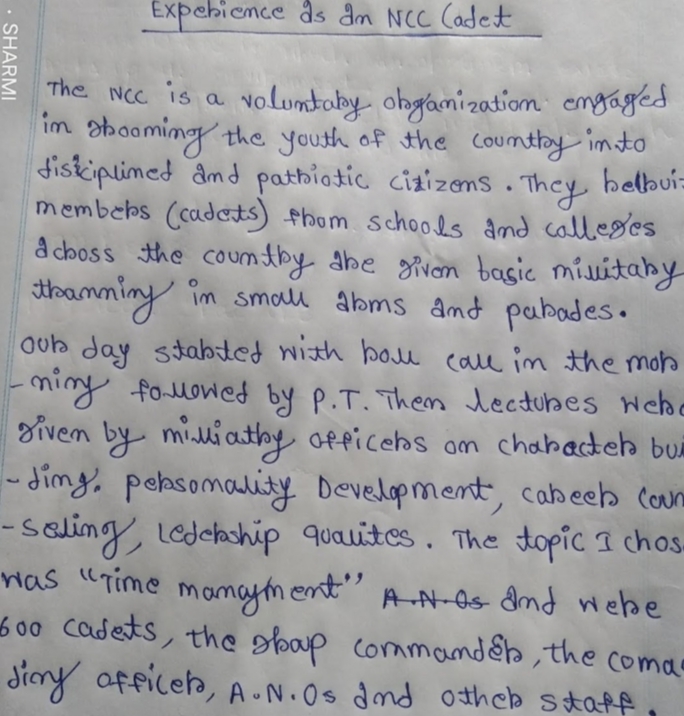 SHARMI
Experience as an NCC Cadet
The NCC is a voluntary organization engaged
in grooming the youth of the country into
disciplined and patriotic citizens. They
members (cadets) from schools and colleges
across the country are given basic military
tranning in small arms and parades.
our day started with roll call in the mor
-ning followed by P.T. Then lectures were
given by milliatry officers on character bui
-ding. personality Development, career coun
-seling, ledership qualites. The topic I chos
was "Time managment" A.N.Os and were
600 cadets, the group commander, the coma
ding officer, A.N.Os and other staff.